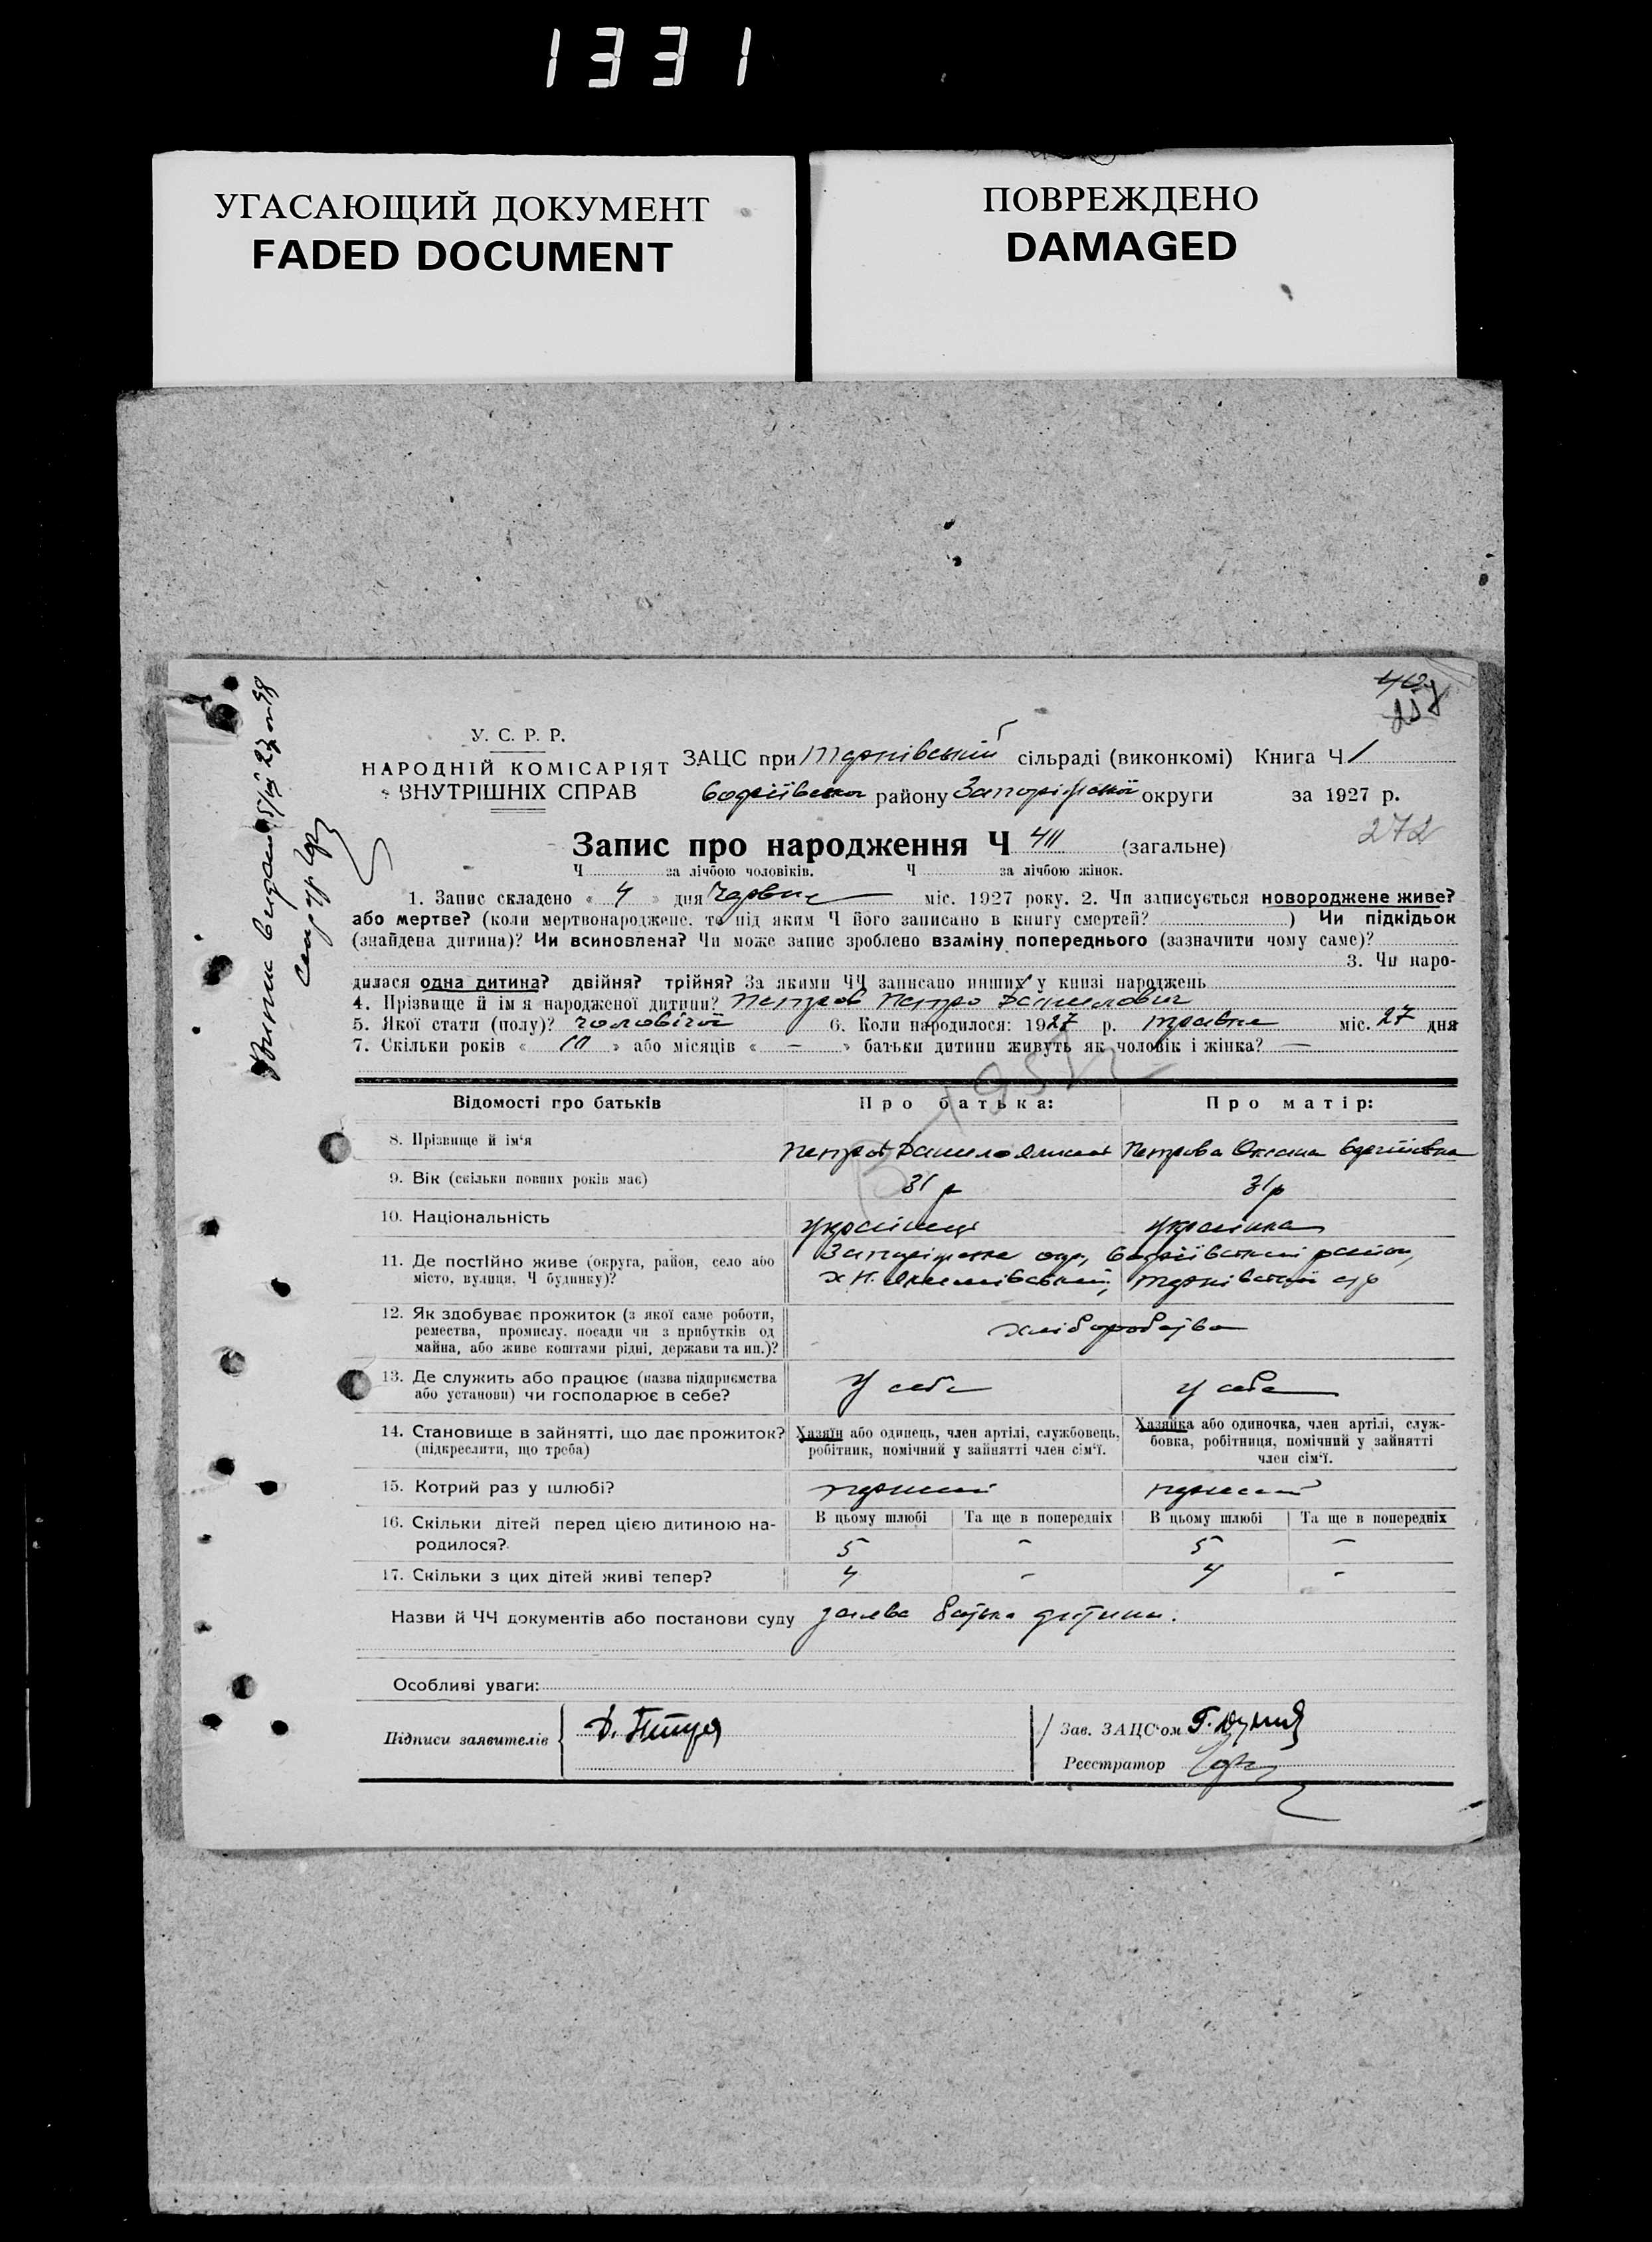 1331
УГАСАЮЩИЙ ДОКУМЕНТ
FADED DOCUMENT
ПОВРЕЖДЕНО
DAMAGED
У. С. Р. Р.
НАРОДНІЙ КОМІСАРІЯТ
ВНУТРІШНІХ СПРАВ
ЗАЦС при сільраді (виконкомі) Книга Ч 1
району Запорізької округи за 1927 р.
272
Запис про народження Ч 411 (загальне)
Ч за лічбою чоловіків. Ч за лічбою жінок.
1. Запис складено « 4 » дня Червня міс. 1927 року. 2. Чи записується новороджене живе?
або мертве? (коли мертвонароджене, то під яким Ч його записано в книгу смертей? ) Чи підкідьок
(знайдена дитина)? Чи всиновлена? Чи може запис зроблено взаміну попереднього (зазначити чому саме)?
3. Чи наро-
дилася одна дитина? двійня? трійня? За якими ЧЧ записано инших у книзі народжень
4. Прізвище й ім'я народженої дитини? Петров Петро Данилович
5. Якої стати (полу)? чоловічої 6. Коли народилося: 1927 р. травня міс. 27 дня
7. Скільки років « 10 » або місяців « — » батьки дитини живуть як чоловік і жінка? —
Відомості про батьків Про батька: Про матір:
8. Прізвище й ім'я Петров Данило Петрова Оксана
9. Вік (скільки повних років має) 31 р 31 р
10. Національність українець українка
11. Де постійно живе (округа, район, село або
місто, вулиця, Ч будинку)?
12. Як здобуває прожиток (з якої саме роботи,
ремества, промислу, посади чи з прибутків од
майна, або живе коштами рідні, держави та ин.)? хліборобство
13. Де служить або працює (назва підприємства
або установи) чи господарює в себе? У себе У себе
14. Становище в зайнятті, що дає прожиток?
(підкреслити, що треба)
Хазяїн або одинець, член артілі, службовець,
робітник, помічний у зайнятті член сім'ї.
Хазяйка або одиночка, член артілі, служ-
бовка, робітниця, помічний у зайнятті
член сім'ї.
15. Котрий раз у шлюбі? перший перший
16. Скільки дітей перед цією дитиною на-
родилося?
В цьому шлюбі Та ще в попередніх В цьому шлюбі Та ще в попередніх
5 — 5 —
17. Скільки з цих дітей живі тепер? 4 — 4 —
Назви й ЧЧ документів або постанови суду заява батька дитини.
Особливі уваги:
Підписи заявителів
Зав. ЗАЦС'ом
Реєстратор